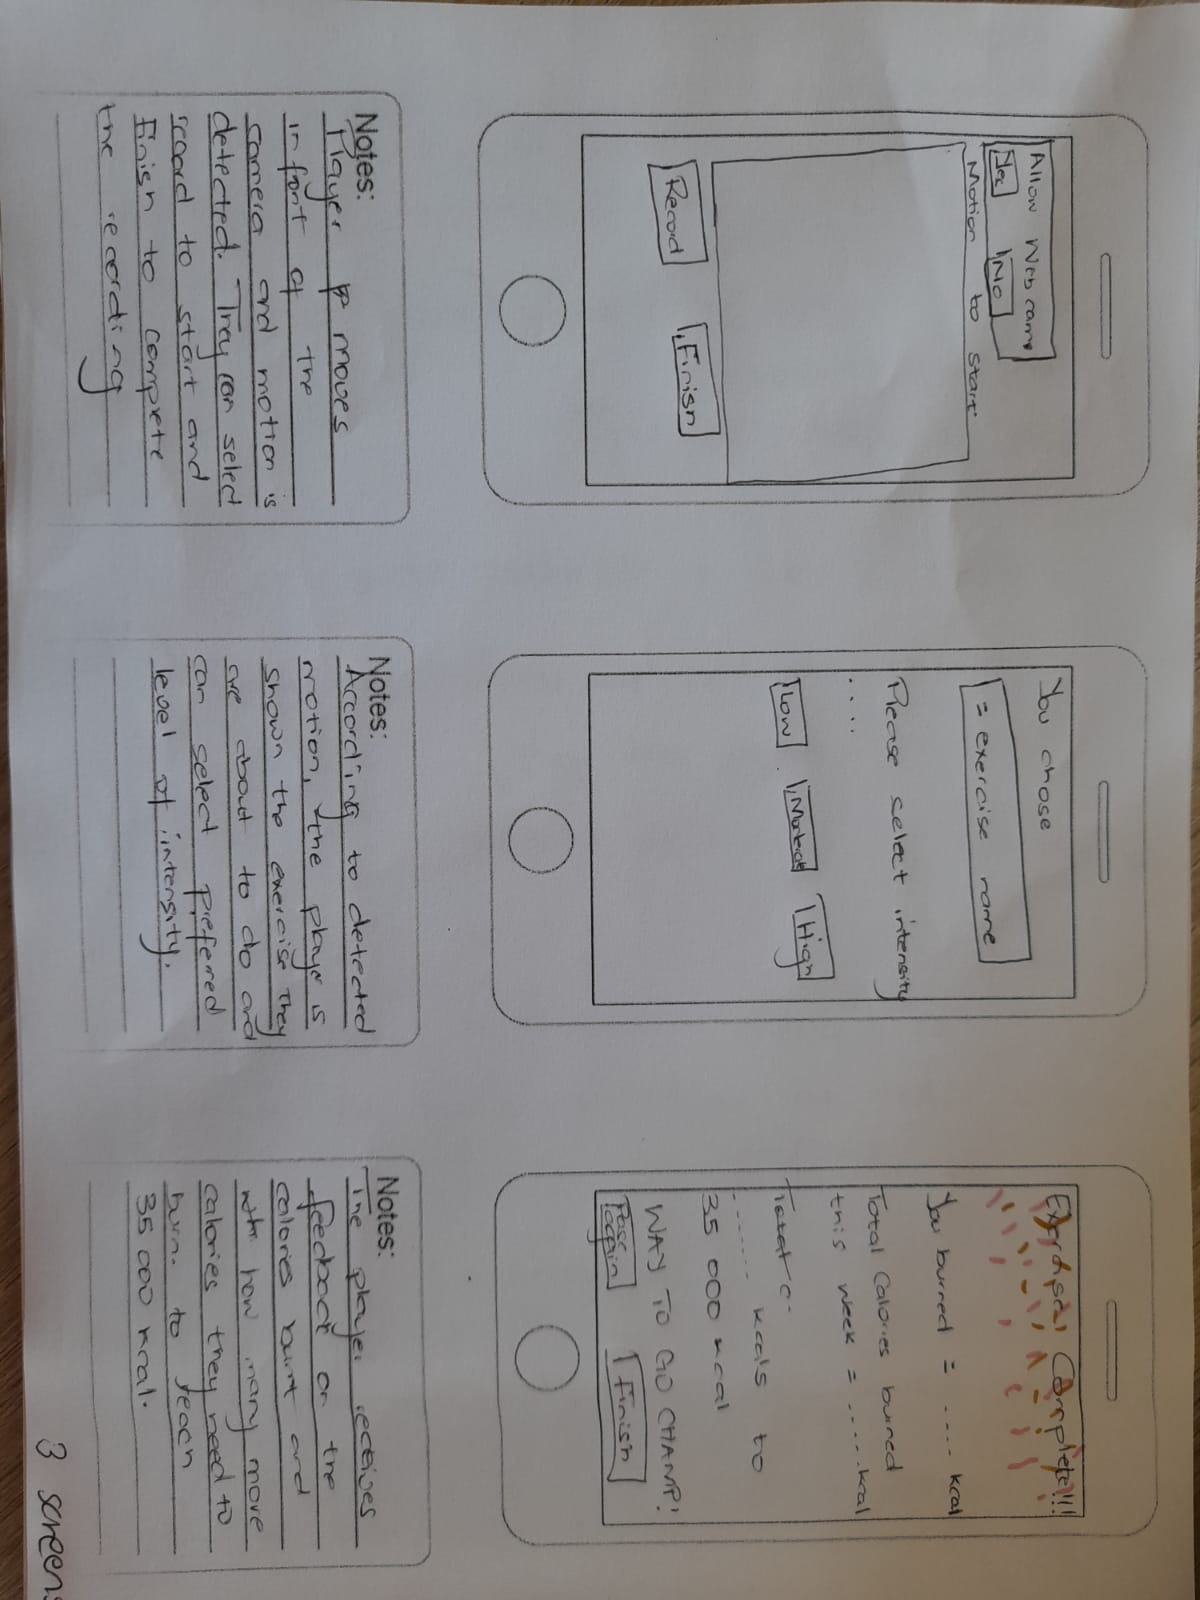 Allow Web came
Yes No
Motion to start
Record Finish
Notes:
Player moves
in front of the
camera and motion is
detected. They can select
record to start and
Finish to complete
the recording
You chose
= exercise name
Please select intensity
....
Low High
Notes:
According to detected
motion, the player is
shown the exercise they
are about to do and
can select preferred
level of intensity.
Exercise Complete!!!
You burned = .... kcal
Total Calories burned
this week = ...... kcal
...... kcals to
35 000 kcal
WAY TO GO CHAMP!
again Finish
Notes:
The player receives
feedback on the
calories burnt and
how many more
calories they need to
burn to reach
35 000 kcal.
3 screens